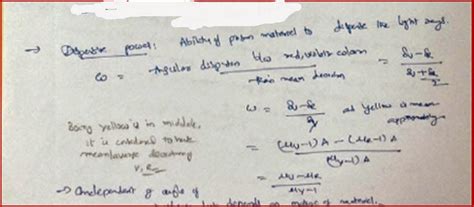 → Dispersive power: Ability of prism material to disperse the light rays.
ω = Angular dispersion b/w red, violet colours / mean deviation = δv - δR / (δv + δR / 2)
ω = δv - δR / δy at yellow is mean
Being yellow is in middle,
it is considered to have
mean/average deviation
V, R
= (μv - 1) A - (μR - 1) A / (μy - 1) A
= μv - μR / μy - 1
→ Independent of angle of
depend on nature of material.